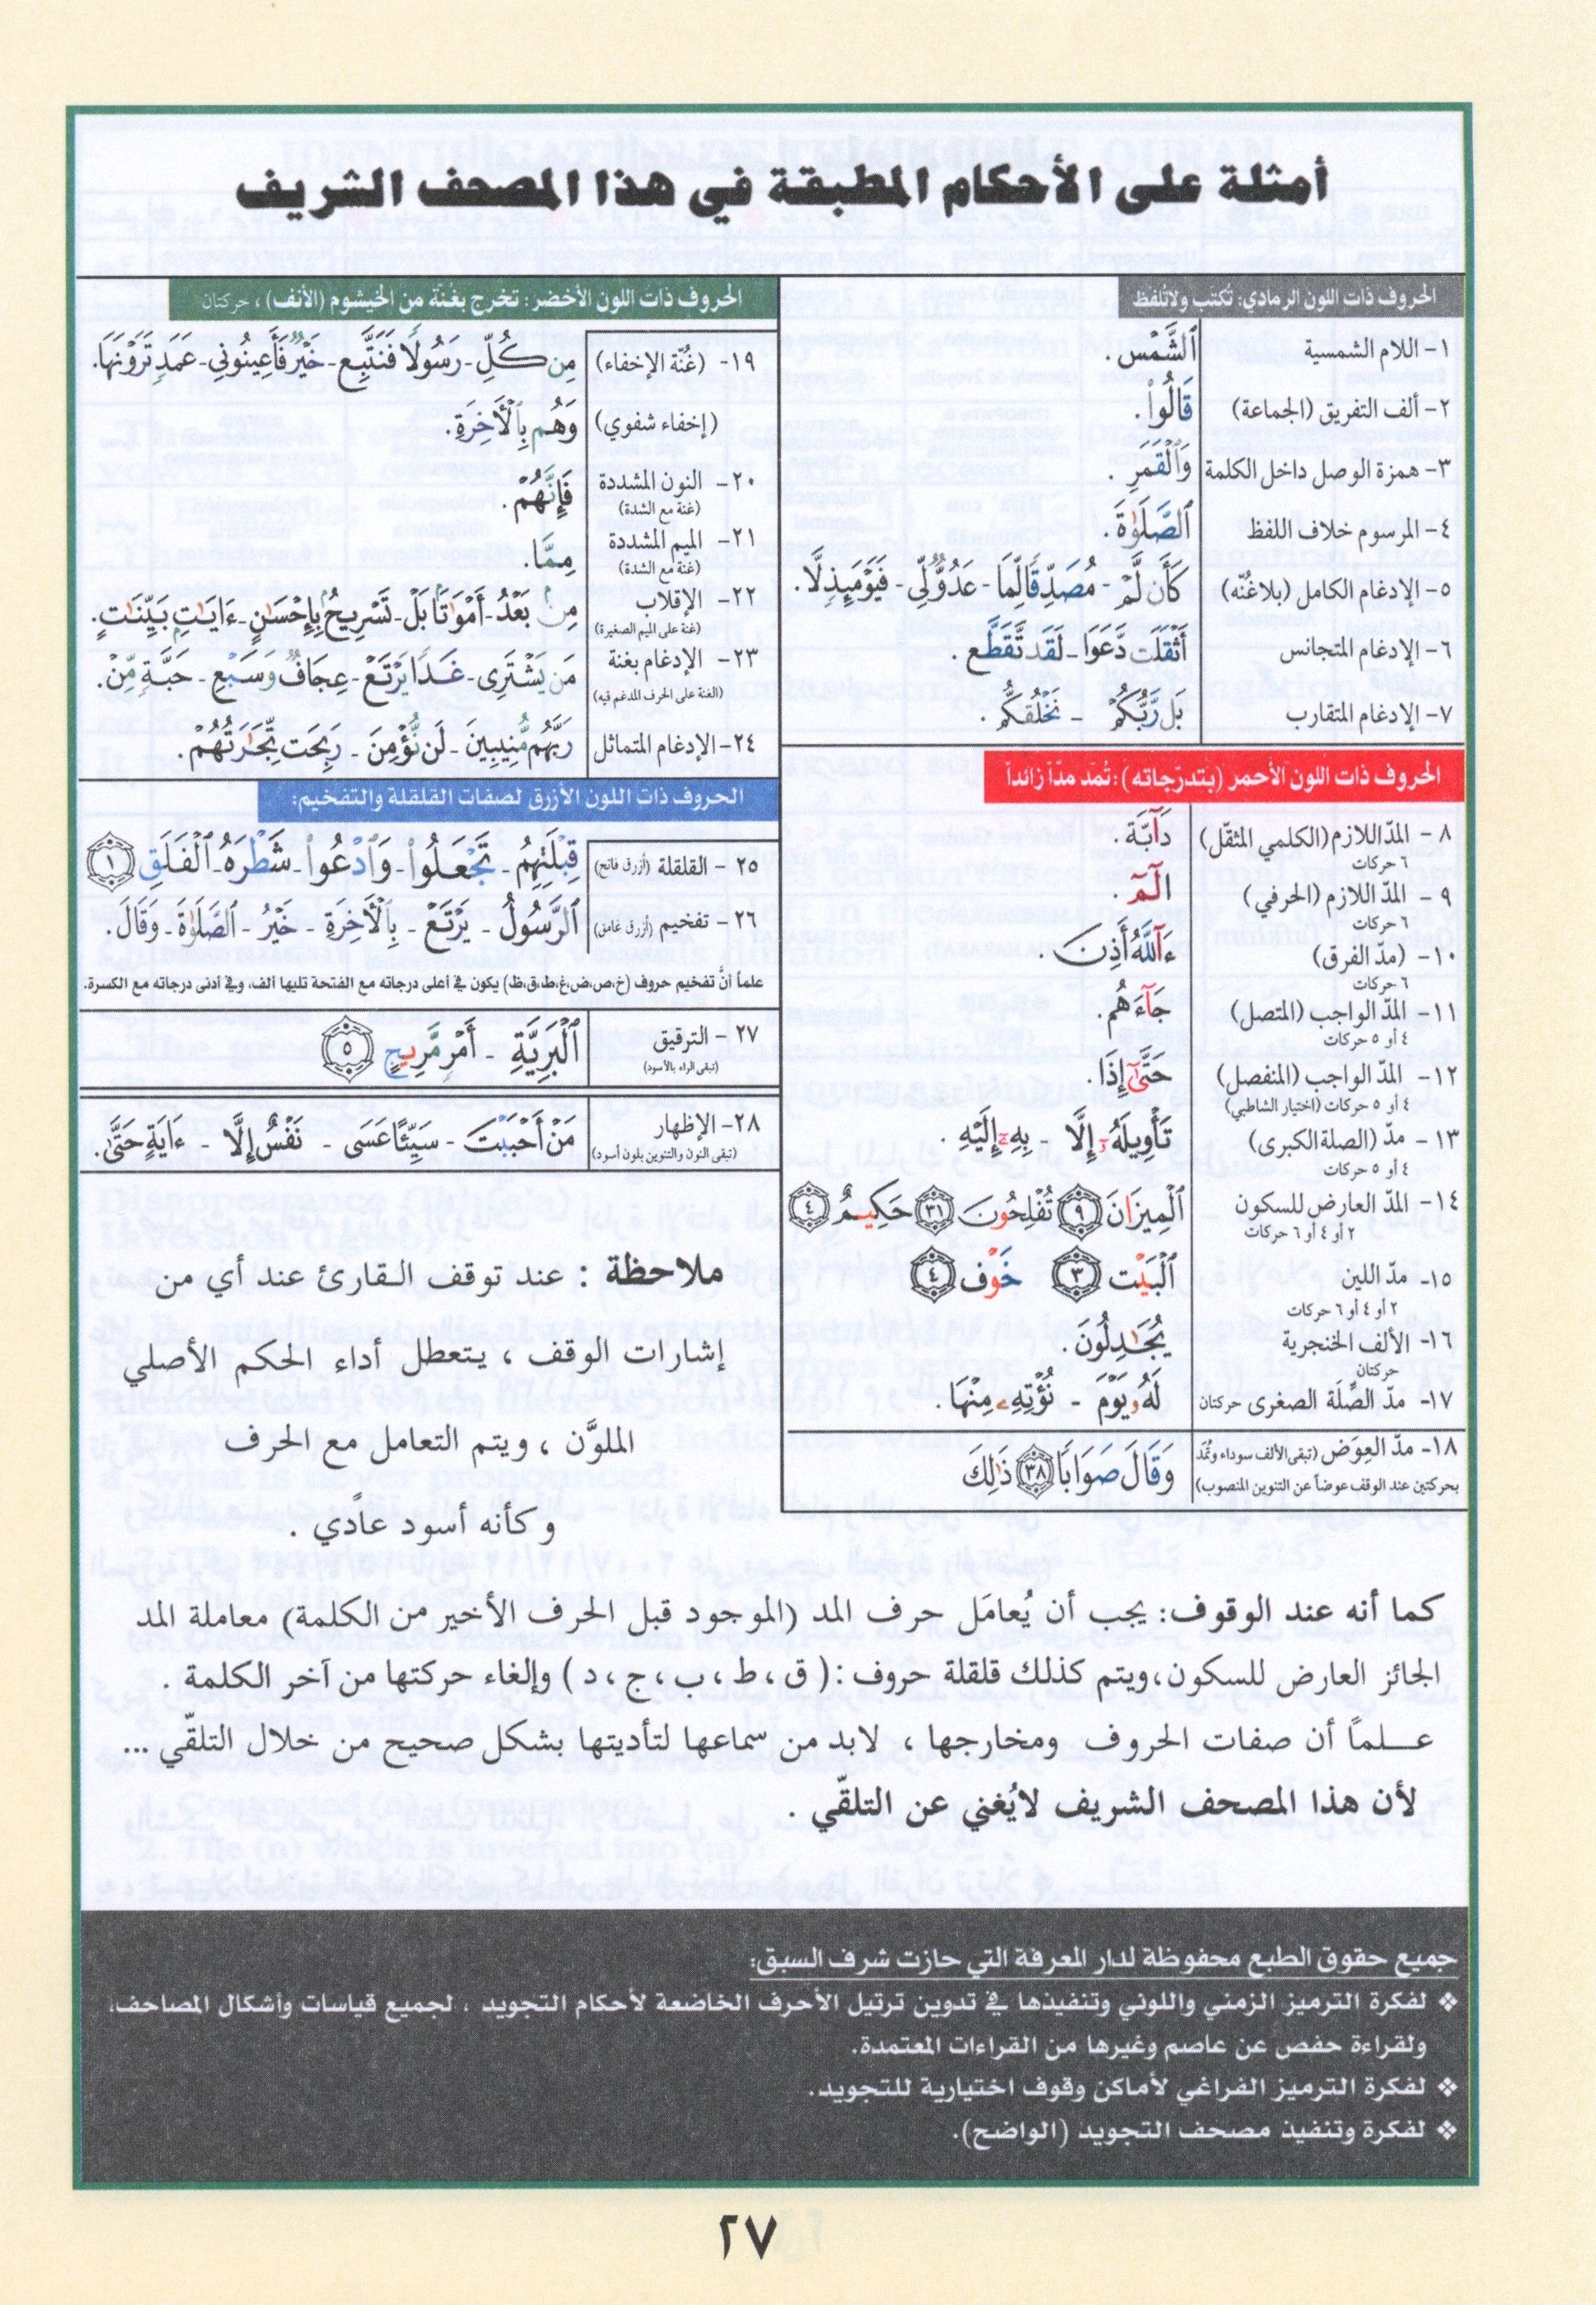 أمثلة على الأحكام المطبقة في هذا المصحف الشريف
الحروف ذات اللون الرمادي: تكتب ولا تلفظ
١- اللام الشمسية ٱلشَّمْسِ.
٢- ألف التفريق (الجماعة) قَالُوا۟.
٣- همزة الوصل داخل الكلمة وَٱلْقَمَرِ.
٤- المرسوم خلاف اللفظ ٱلصَّلَوٰةَ.
٥- الإدغام الكامل (بلاغنّه) كَأَن لَّمْ - مُصَدِّقًا لِّمَا - عَدُوٌّ لِّي - فَيَوْمَئِذٍ لَّا.
٦- الإدغام المتجانس أَثْقَلَت دَّعَوَا - لَقَد تَّقَطَّعَ.
٧- الإدغام المتقارب بَل رَّبُّكُمْ - نَخْلُقكُّم.
الحروف ذات اللون الأحمر (بتدرّجاته): تُمَد مدّاً زائداً
٨- المدّ اللازم (الكلمي المثقّل) دَآبَّة.
٦ حركات
٩- المدّ اللازم (الحرفي) الٓمٓ.
٦ حركات
١٠- (مدّ الفرق) ءَآللَّهُ أَذِنَ.
٦ حركات
١١- المدّ الواجب (المتصل) جَآءَهُم.
٤ أو ٥ حركات
١٢- المدّ الواجب (المنفصل) حَتَّىٰٓ إِذَا.
٤ أو ٥ حركات (اختيار الشاطبي)
١٣- مدّ (الصلة الكبرى) تَأْوِيلَهُۥٓ إِلَّا - بِهِۦٓ إِلَيْهِ.
٤ أو ٥ حركات
١٤- المدّ العارض للسكون ٱلْمِيزَانَ ٩ تُفْلِحُونَ ٣١ حَكِيمٌ ٤
٢ أو ٤ أو ٦ حركات
١٥- مدّ اللين ٱلْبَيْتِ ٣ خَوْفٍ ٤
٢ أو ٤ أو ٦ حركات
١٦- الألف الخنجرية يُجَٰدِلُونَ.
حركتان
١٧- مدّ الصِّلَة الصغرى حركتان لَهُۥ يَوْمَ - نُؤْتِهِۦ مِنْهَا.
١٨- مدّ العِوَض (تبقى الألف سوداء وتُمَدّ وَقَالَ صَوَابًا ٣٨ ذَٰلِكَ
بحركتين عند الوقف عوضاً عن التنوين المنصوب)
الحروف ذات اللون الأخضر: تخرج بغنّة من الخيشوم (الأنف)، حركتان
١٩- (غُنّة الإخفاء) مِن كُلِّ - رَسُولًا فَنَتَّبِعَ - خَيْرٌ فَأَعِينُونِي - عَمَدٍ تَرَوْنَهَا.
(إخفاء شفوي) وَهُم بِٱلْأَخِرَةِ.
٢٠- النون المشددة فَإِنَّهُمْ.
(غنة مع الشدة)
٢١- الميم المشددة مِمَّا.
(غنة مع الشدة)
٢٢- الإقلاب مِنۢ بَعْدُ - أَمْوَٰتًا بَلْ - تَسْرِيحٌۢ بِإِحْسَٰنٍ - ءَايَٰتٍۭ بَيِّنَٰتٍ.
(غنة على الميم الصغيرة)
٢٣- الإدغام بغنة مَن يَشْتَرِى - غَدًا يَرْتَعْ - عِجَافٌ وَسَبْعِ - حَبَّةٍ مِّنْ.
(الغنة على الحرف المدغم فيه)
٢٤- الإدغام المتماثل رَبَّهُم مُّنِيبِينَ - لَن نُّؤْمِنَ - رَبِحَت تِّجَٰرَتُهُمْ.
الحروف ذات اللون الأزرق لصفات القلقلة والتفخيم:
٢٥- القلقلة (أزرق فاتح) قِبْلَتِهِمُ - تَجْعَلُوا۟ - وَٱدْعُوا۟ - شَطْرَهُ - ٱلْفَلَقِ ١
٢٦- تفخيم (أزرق غامق) ٱلرَّسُولُ - يَرْتَعْ - بِٱلْأَخِرَةِ - خَيْرُ - ٱلصَّلَوٰةَ - وَقَالَ.
علماً أنَّ تفخيم حروف (خ،ص،ض،غ،ط،ق،ظ) يكون في أعلى درجاته مع الفتحة تليها ألف، وفي أدنى درجاته مع الكسرة.
٢٧- الترقيق ٱلْبَرِيَّةِ - أَمْرٍ مَّرِيجٍ ٥
(تبقى الراء بالأسود)
٢٨- الإظهار مَنْ أَحْبَبْتَ - سَيِّئًا عَسَى - نَفْسٌ إِلَّا - ءَايَةٍ حَتَّىٰ.
(تبقى النون والتنوين بلون أسود)
ملاحظة : عند توقف القارئ عند أي من
إشارات الوقف ، يتعطل أداء الحكم الأصلي
الملوَّن ، ويتم التعامل مع الحرف
وكأنه أسود عادي .
كما أنه عند الوقوف: يجب أن يُعامَل حرف المد (الموجود قبل الحرف الأخير من الكلمة) معاملة المد
الجائز العارض للسكون، ويتم كذلك قلقلة حروف : ( ق ، ط ، ب ، ج ، د ) وإلغاء حركتها من آخر الكلمة .
علـمـاً أن صفات الحروف ومخارجها ، لابد من سماعها لتأديتها بشكل صحيح من خلال التلقّي ...
لأن هذا المصحف الشريف لايُغني عن التلقّي .
جميع حقوق الطبع محفوظة لدار المعرفة التي حازت شرف السبق:
❖ لفكرة الترميز الزمني واللوني وتنفيذها في تدوين ترتيل الأحرف الخاضعة لأحكام التجويد ، لجميع قياسات وأشكال المصاحف،
ولقراءة حفص عن عاصم وغيرها من القراءات المعتمدة.
❖ لفكرة الترميز الفراغي لأماكن وقوف اختيارية للتجويد.
❖ لفكرة وتنفيذ مصحف التجويد (الواضح).
٢٧